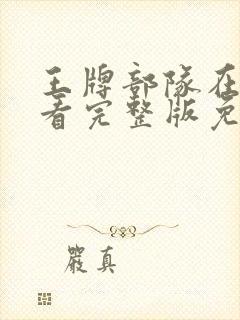 王牌部队在
看完整版免
嚴真